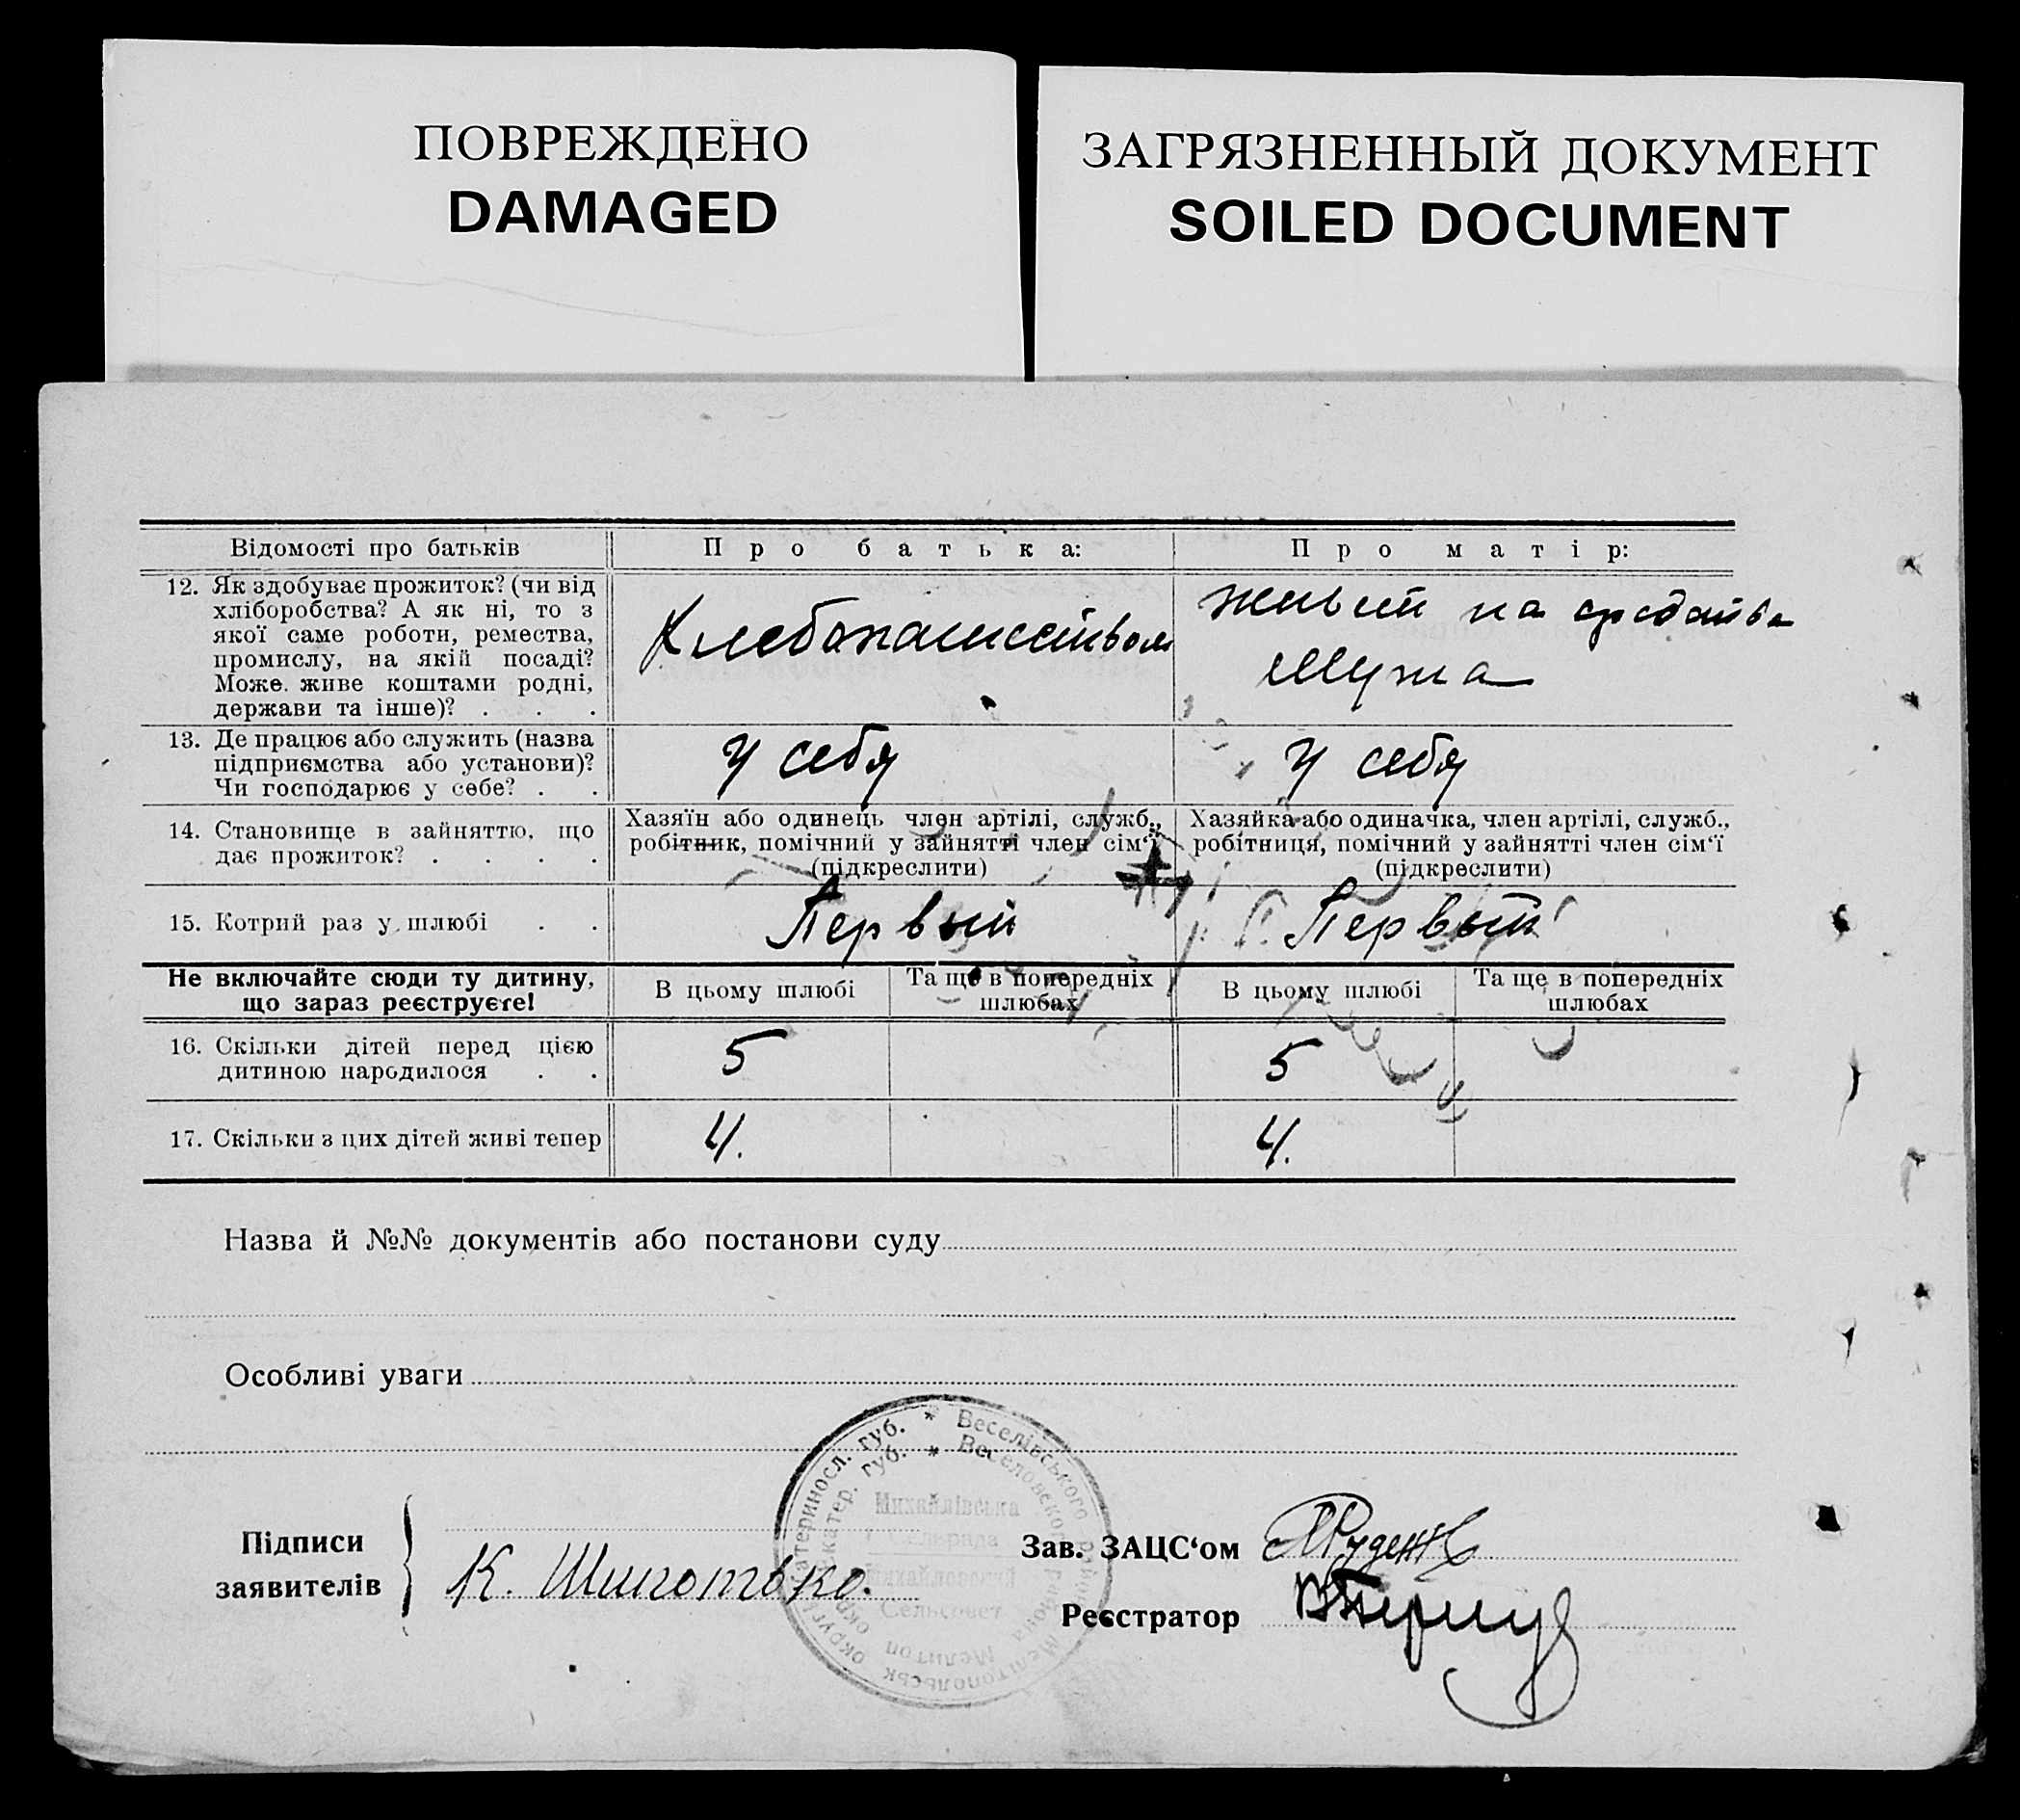 ПОВРЕЖДЕНО
DAMAGED
ЗАГРЯЗНЕННЫЙ ДОКУМЕНТ
SOILED DOCUMENT
Відомості про батьків
Про батька:
Про матір:
12. Як здобуває прожиток? (чи від
хліборобства? А як ні, то з
якої саме роботи, ремества,
промислу, на якій посаді?
Може живе коштами родні,
держави та інше)? . . .
Хлебопашеством
живет на средства
мужа
13. Де працює або служить (назва
підприємства або установи)?
Чи господарює у себе? . .
У себя
У себя
14. Становище в зайняттю, що
дає прожиток? . . . .
Хазяїн або одинець член артілі, служб.,
робітник, помічний у зайнятті член сім'ї
(підкреслити)
Хазяйка або одиначка, член артілі, служб.,
робітниця, помічний у зайнятті член сім'ї
(підкреслити)
15. Котрий раз у шлюбі . .
Первый
Первый
Не включайте сюди ту дитину,
що зараз реєструєте!
В цьому шлюбі
Та ще в попередніх
шлюбах
В цьому шлюбі
Та ще в попередніх
шлюбах
16. Скільки дітей перед цією
дитиною народилося . .
5
5
17. Скільки з цих дітей живі тепер
4.
4.
Назва й №№ документів або постанови суду
Особливі уваги
Підписи
заявителів
К.
Зав. ЗАЦС'ом
Реєстратор
Катериносл. губ. * Веселівського району Мелітопольськ округ
Екатер. губ. * Веселовского района Мелитоп окр
Михайлівська
Сельрада
Михайловский
Сельсовет